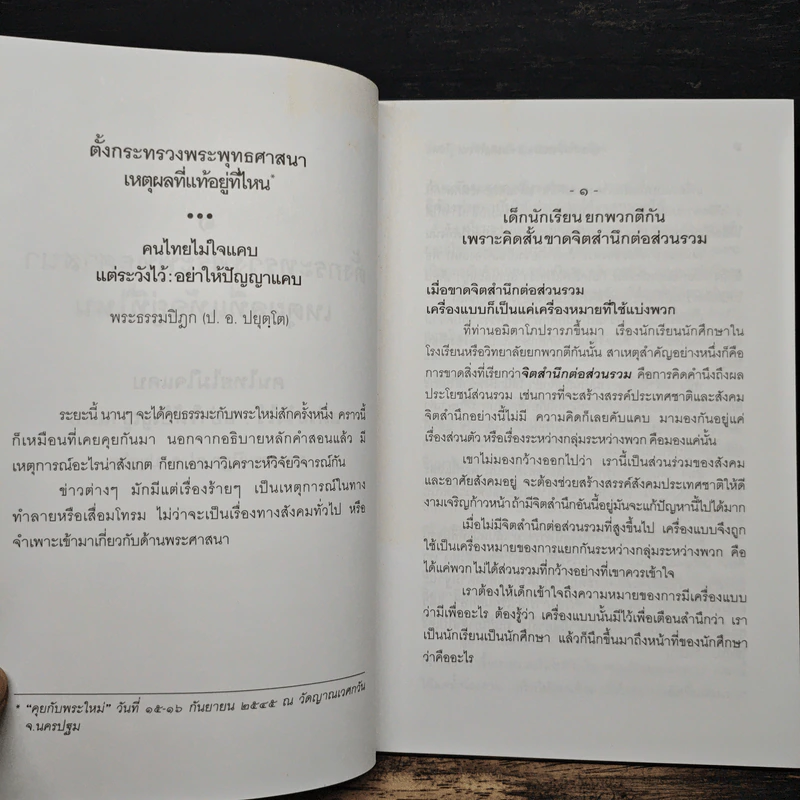 ตั้งกระทรวงพระพุทธศาสนา
เหตุผลที่แท้อยู่ที่ไหน*
•••
คนไทยไม่ใจแคบ
แต่ระวังไว้: อย่าให้ปัญญาแคบ
พระธรรมปิฎก (ป. อ. ปยุตฺโต)
ระยะนี้ นานๆ จะได้คุยธรรมะกับพระใหม่สักครั้งหนึ่ง คราวนี้
ก็เหมือนที่เคยคุยกันมา นอกจากอธิบายหลักคำสอนแล้ว มี
เหตุการณ์อะไรน่าสังเกต ก็ยกเอามาวิเคราะห์วิจัยวิจารณ์กัน
ข่าวต่างๆ มักมีแต่เรื่องร้ายๆ เป็นเหตุการณ์ในทาง
ทำลายหรือเสื่อมโทรม ไม่ว่าจะเป็นเรื่องทางสังคมทั่วไป หรือ
จำเพาะเข้ามาเกี่ยวกับด้านพระศาสนา
* "คุยกับพระใหม่" วันที่ ๑๕-๑๖ กันยายน ๒๕๔๕ ณ วัดญาณเวศกวัน
จ.นครปฐม
- ๑ -
เด็กนักเรียน ยกพวกตีกัน
เพราะคิดสั้น ขาดจิตสำนึกต่อส่วนรวม
เมื่อขาดจิตสำนึกต่อส่วนรวม
เครื่องแบบก็เป็นแค่เครื่องหมายที่ใช้แบ่งพวก
ที่ท่านอมิตาโภปรารภขึ้นมา เรื่องนักเรียนนักศึกษาใน
โรงเรียนหรือวิทยาลัยยกพวกตีกันนั้น สาเหตุสำคัญอย่างหนึ่งก็คือ
การขาดสิ่งที่เรียกว่าจิตสำนึกต่อส่วนรวม คือการคิดคำนึงถึงผล
ประโยชน์ส่วนรวม เช่นการที่จะสร้างสรรค์ประเทศชาติและสังคม
จิตสำนึกอย่างนี้ไม่มี ความคิดก็เลยคับแคบ มามองกันอยู่แค่
เรื่องส่วนตัว หรือเรื่องระหว่างกลุ่มระหว่างพวก คือมองแค่นั้น
เขาไม่มองกว้างออกไปว่า เรานี้เป็นส่วนร่วมของสังคม
และอาศัยสังคมอยู่ จะต้องช่วยสร้างสรรค์สังคมประเทศชาติให้ดี
งามเจริญก้าวหน้า ถ้ามีจิตสำนึกอันนี้อยู่มันจะแก้ปัญหานี้ไปได้มาก
เมื่อไม่มีจิตสำนึกต่อส่วนรวมที่สูงขึ้นไป เครื่องแบบจึงถูก
ใช้เป็นเครื่องหมายของการแยกกันระหว่างกลุ่มระหว่างพวก คือ
ได้แค่พวก ไม่ได้ส่วนรวมที่กว้างอย่างที่เขาควรเข้าใจ
เราต้องให้เด็กเข้าใจถึงความหมายของการมีเครื่องแบบ
ว่ามีเพื่ออะไร ต้องรู้ว่า เครื่องแบบนั้นมีไว้เพื่อเตือนสำนึกว่า เรา
เป็นนักเรียนเป็นนักศึกษา แล้วก็นึกขึ้นมาถึงหน้าที่ของนักศึกษา
ว่าคืออะไร